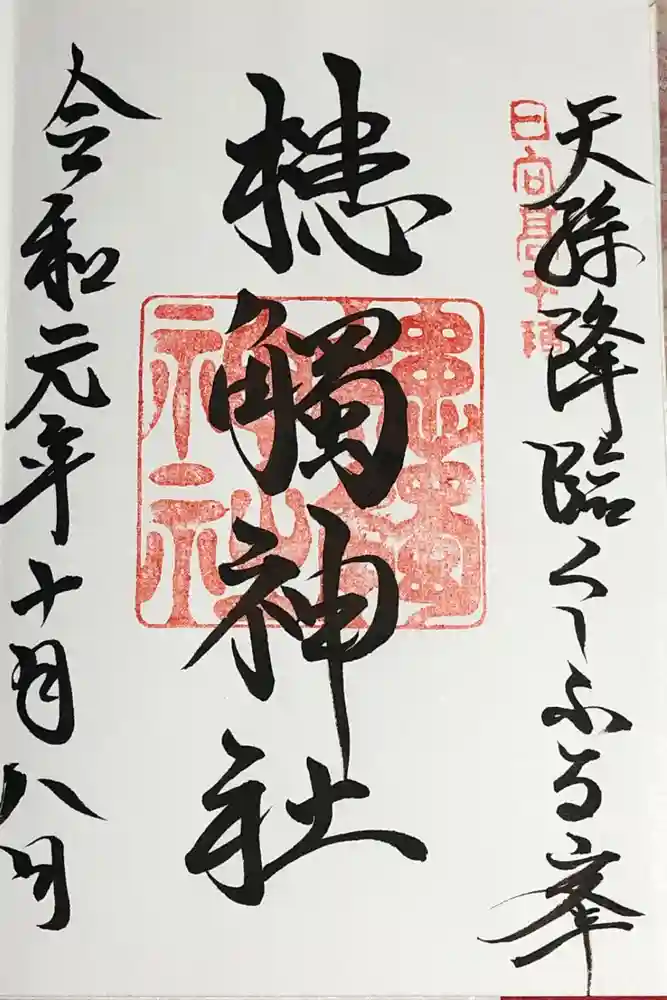 天孫降臨くしふる峯
日向高千穂
槵觸神社
槵觸神社
令和元年十月八日